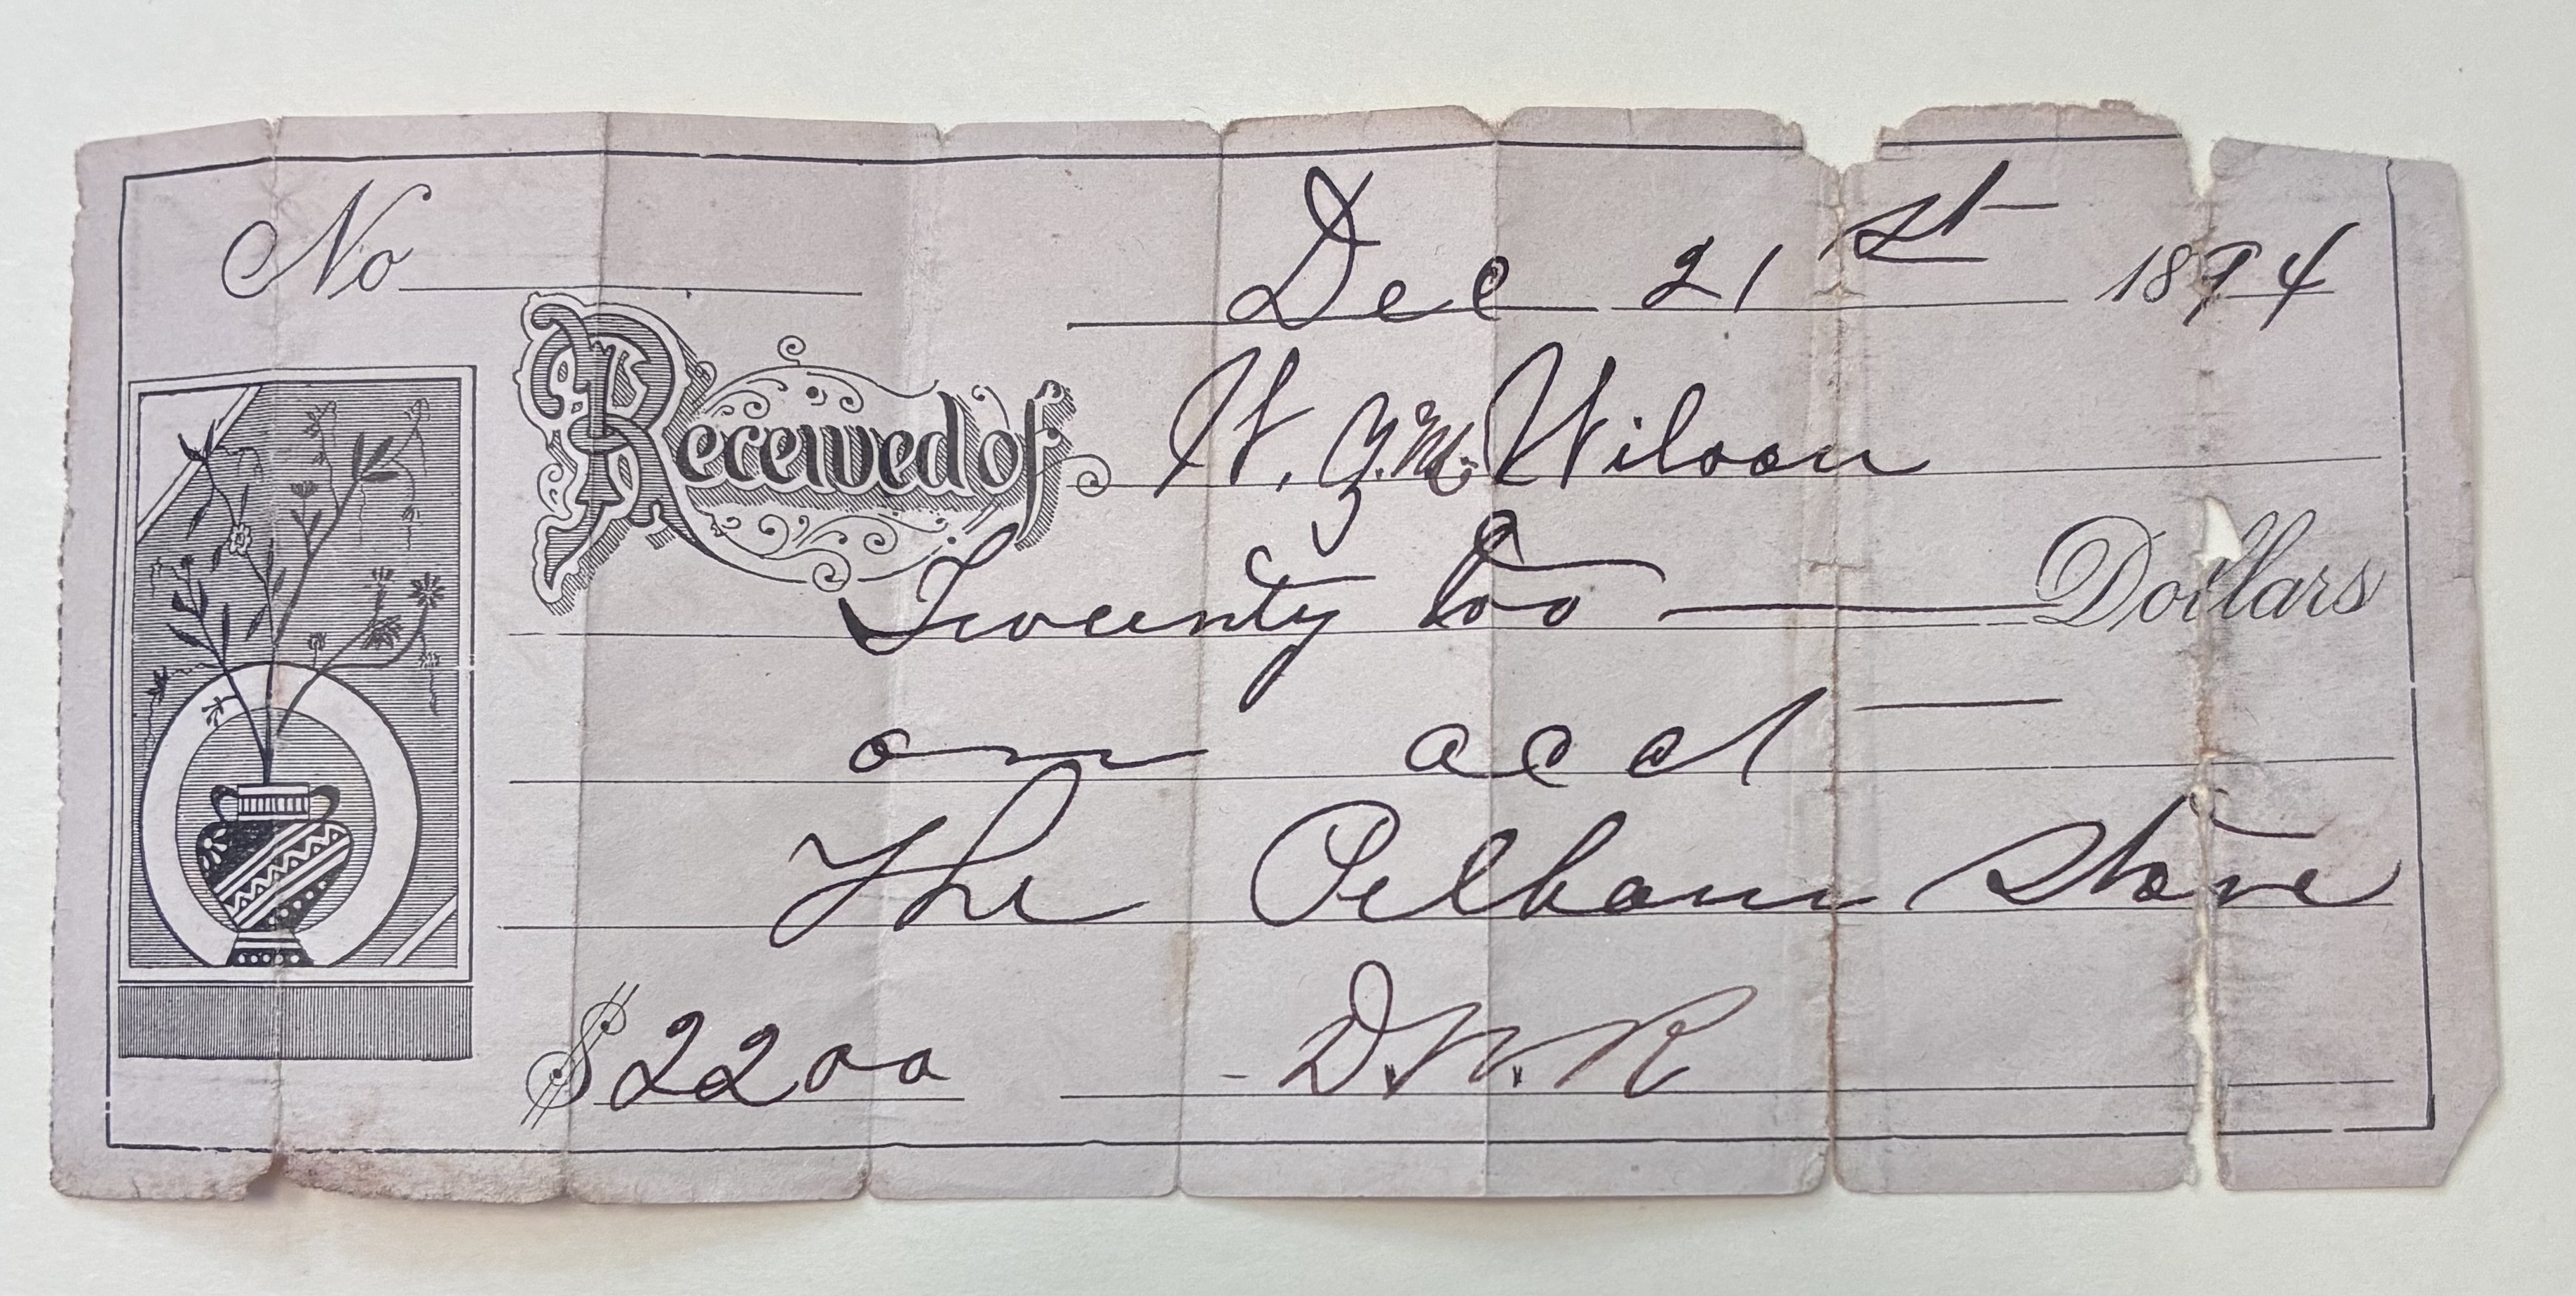 No Dec 21st 1894
Received of W. Y. M. Wilson
Twenty too Dollars
on acct
The Pelham Store
$22oo D.W.R